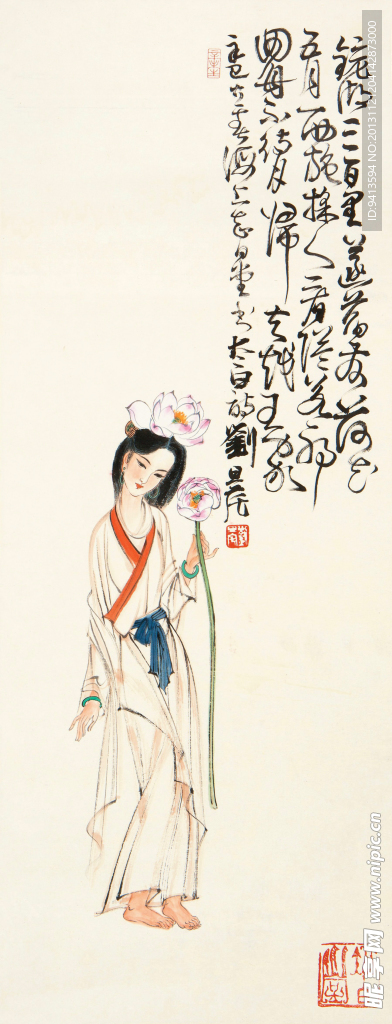 鏡湖三百里菡萏發荷花
五月西施採人看隘若耶
回舟不待月歸去越王家
辛巳海上書太白詩劉旦宅
ID:9413594 NO:20131121204142873000
昵享网 www.nipic.cn